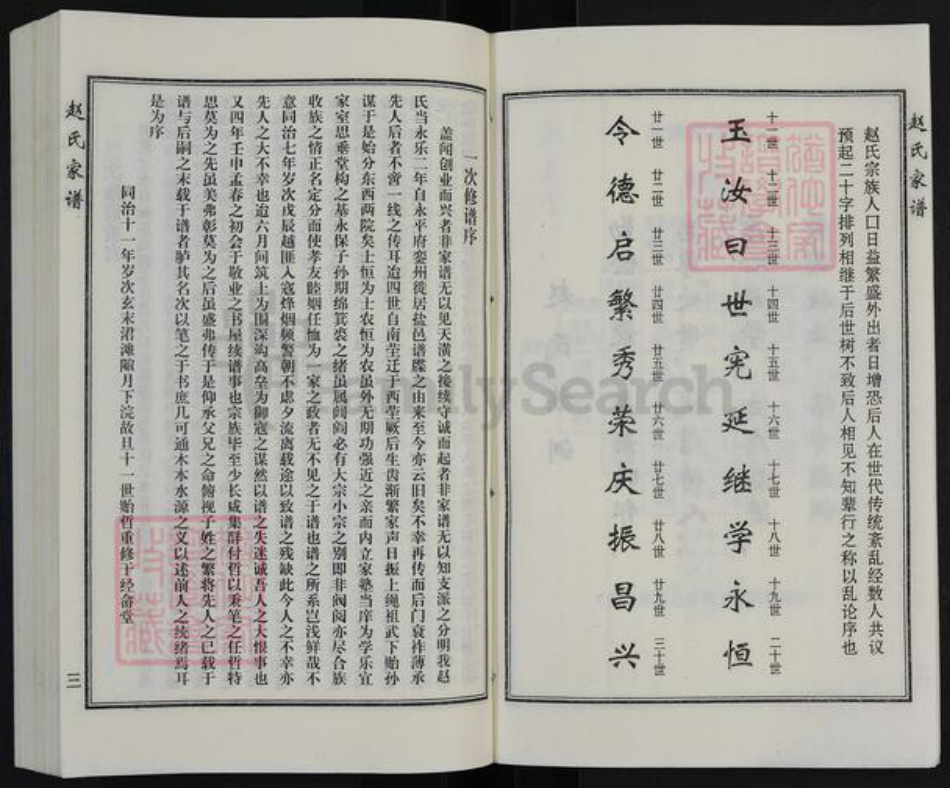 赵氏家谱
赵氏宗族人口日益繁盛外出者日增恐后人在世代传统紊乱经数人共议
预起二十字排列相继于后世树不致后人相见不知辈行之称以乱论序也
十一世 十二世 十三世 十四世 十五世 十六世 十七世 十八世 十九世 二十世
玉汝曰世宪延继学永恒
廿一世 廿二世 廿三世 廿四世 廿五世 廿六世 廿七世 廿八世 廿九世 三十世
令德启繁秀荣庆振昌兴
一次修谱序
盖闻创业而兴者非家谱无以见天潢之接续守诚而起者非家谱无以知支派之分明我赵
氏当永乐二年自永平府栾州徙居盐邑谱牒之由来至今亦云旧矣不幸再传而后门衰祚薄承
先人后者不啻一线之传耳迨四世自南茔迁于西茔厥后生齿渐繁家声日振上绳祖武下贻孙
谋于是始分东西两院矣士恒为士农恒为农虽外无期功强近之亲而内立家塾当庠为学乐宜
家室思垂堂构之基永保子孙期绵箕裘之绪虽属闾阎必有大宗小宗之别即非阀阅亦尽合族
收族之情正名定分而使孝友睦姻任恤为一家之政者无不见之于谱也谱之所系岂浅鲜哉不
意同治七年岁次戊辰越匪入寇烽烟频警朝不虑夕流离载途以致谱之残缺此今人之不幸亦
先人之大不幸也迨六月间筑土为围深沟高垒为御寇之谋然以谱之失迷诚吾人之大恨事也
又四年壬申孟春之初会于敬业之书屋续谱事也宗族毕至少长咸集群付哲以秉笔之任哲特
思莫为之先虽美弗彰莫为之后虽盛弗传于是仰承父兄之命俯视子姓之繁将先人之已载于
谱与后嗣之未载于谱者胪其名次以笔之于书庶几可通木本水源之义以述前人之统绪焉耳
是为序
同治十一年岁次玄末涒滩陬月下浣故旦十一世贻哲重修于经畬堂
赵氏家谱
三
FamilySearch